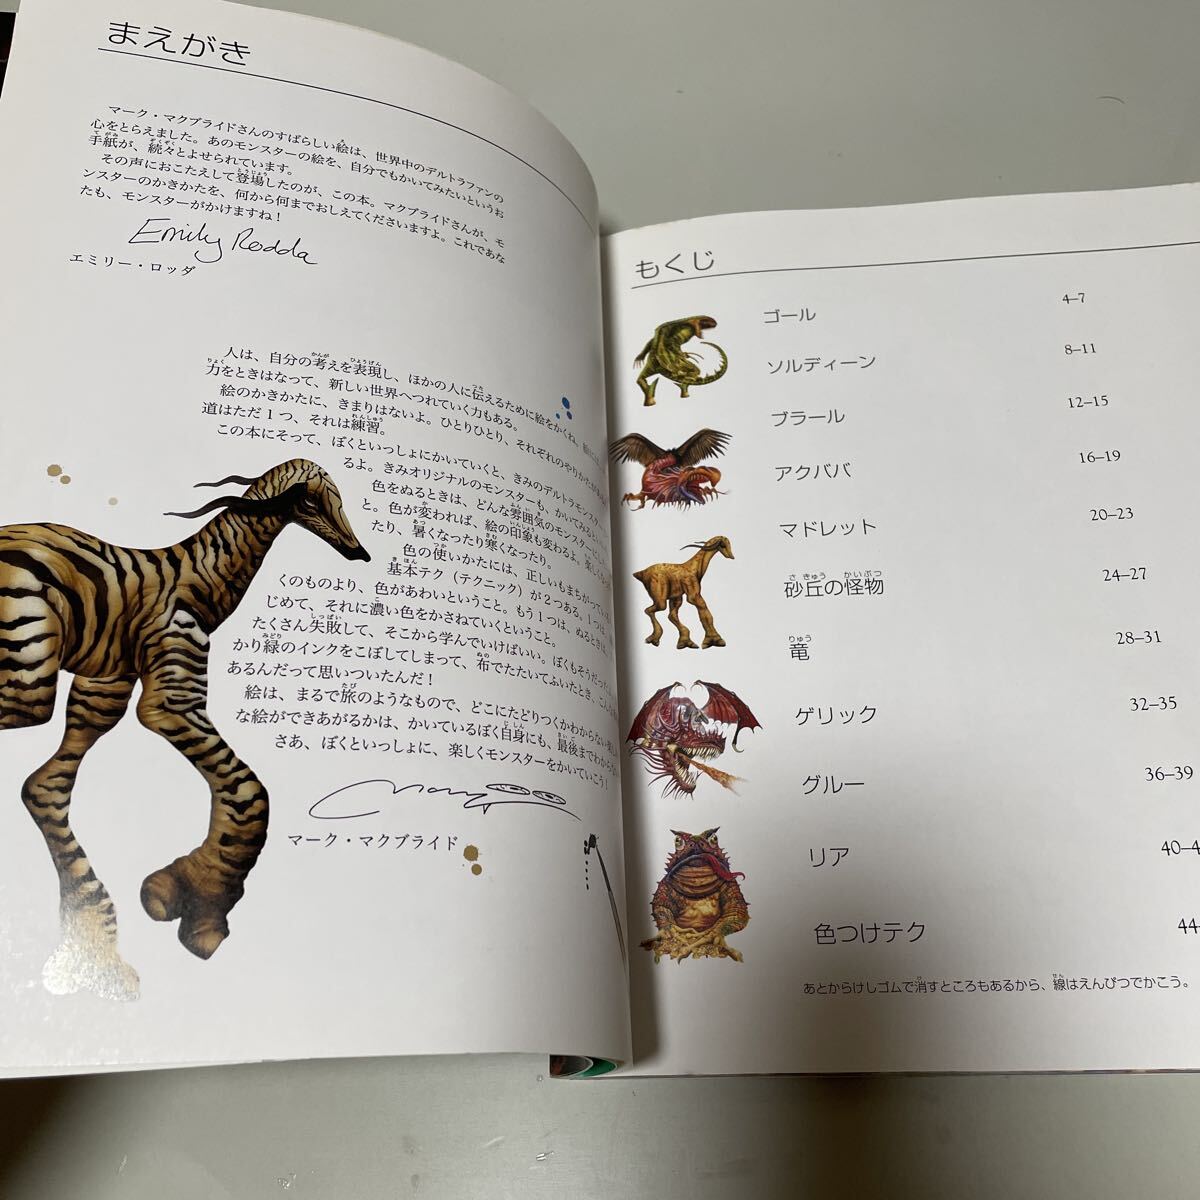 まえがき
マーク・マクブライドさんのすばらしい絵は、世界中のデルトラファンの
心をとらえました。あのモンスターの絵を、自分でもかいてみたいというお
手紙が、続々とよせられています。
その声におこたえして登場したのが、この本。マクブライドさんが、モ
ンスターのかきかたを、何から何までおしえてくださいますよ。これであな
たも、モンスターがかけますね！
Emily Rodda
エミリー・ロッダ
人は、自分の考えを表現し、ほかの人に伝えるために絵をかくね。
力をときはなって、新しい世界へつれていく力もある。
絵のかきかたに、きまりはないよ。ひとりひとり、それぞれのやりかたが
道はただ１つ、それは練習。
この本にそって、ぼくといっしょにかいていくと、きみのデルトラモンスター
るよ。きみオリジナルのモンスターも、かいてみるといい
色をぬるときは、どんな雰囲気のモンスターにしたい
と。色が変われば、絵の印象も変わるよ。楽しくなっ
たり、暑くなったり寒くなったり。
色の使いかたには、正しいもまちがっている
基本テク（テクニック）が２つある。１つは、
くのものより、色があわいということ。もう１つは、ぬるときは、
じめて、それに濃い色をかさねていくということ。
たくさん失敗して、そこから学んでいけばいい。ぼくもそうだった
かり緑のインクをこぼしてしまって、布でたたいてふいたとき、こんな
あるんだって思いついたんだ！
絵は、まるで旅のようなもので、どこにたどりつくかわからない
な絵ができあがるかは、かいているぼく自身にも、最後までわからない
さあ、ぼくといっしょに、楽しくモンスターをかいていこう！
マーク・マクブライド
もくじ
ゴール 4–7
ソルディーン 8–11
ブラール 12–15
アクババ 16–19
マドレット 20–23
砂丘の怪物 24–27
竜 28–31
ゲリック 32–35
グルー 36–39
リア 40–4
色つけテク 44–
あとからけしゴムで消すところもあるから、線はえんぴつでかこう。